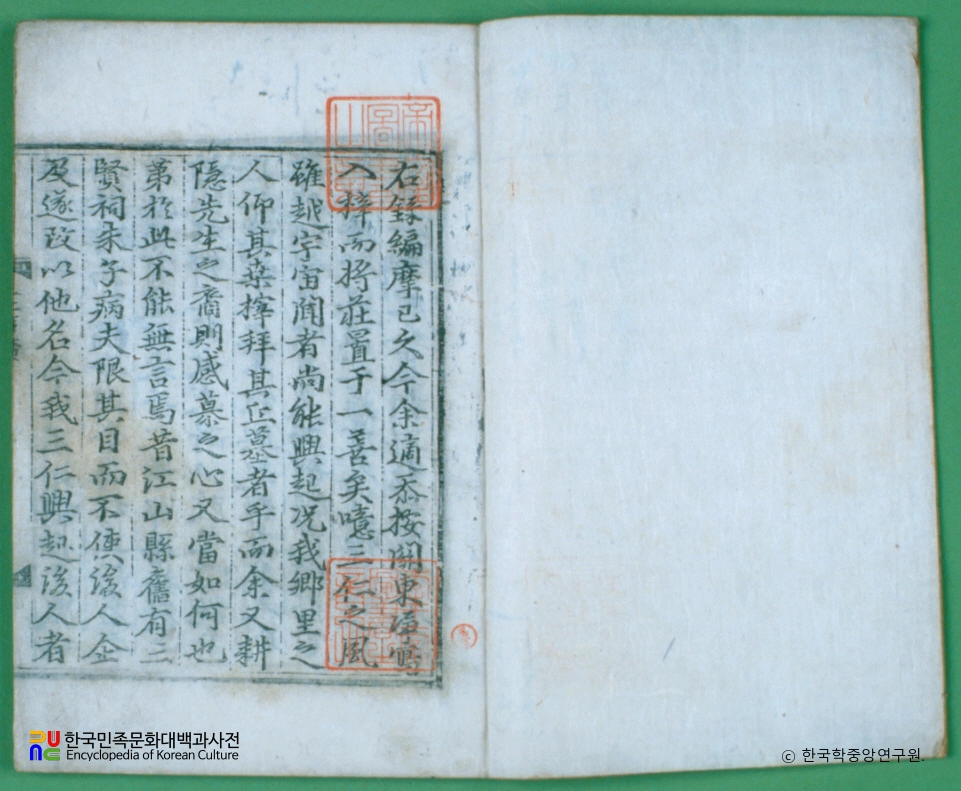 右錄編摩已久今余適忝按關東得寫
入梓而將莊置于一善矣噫三仁之風
雖越宇宙聞者尙能興起况我鄕里之
人仰其桑梓拜其丘墓者乎而余又耕
隱先生之裔則感慕之心又當如何也
第於此不能無言焉昔江山縣舊有三
賢祠朱子病夫限其目而不使後人企
及遂改以他名今我三仁興起後人者
한국민족문화대백과사전
Encyclopedia of Korean Culture
ⓒ 한국학중앙연구원.